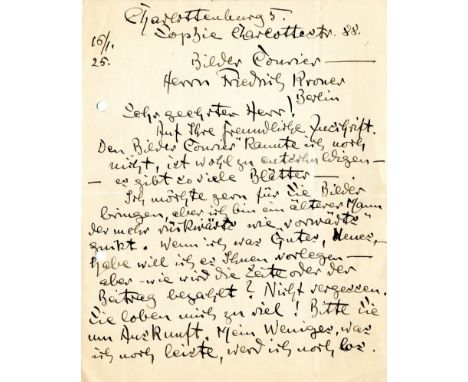 Charlottenburg 5.
Sophie Charlottestr. 88.
16/1.
25.
Bilder Courier —
Herrn Friedrich Kroner
Berlin
Sehr geehrter Herr!
Auf Ihre freundliche Zuschrift.
Den Bilder Courier kannte ich noch
nicht, ist wohl zu entschuldigen —
— es gibt so viele Blätter —.
Ich möchte gern für Sie Bilder
bringen, aber ich bin ein älterer Mann
der mehr rückwärts wie vorwärts
guckt. Wenn ich was Gutes, Neues,
habe will ich es Ihnen vorlegen —
aber wie wird die Zeile oder der
Beitrag bezahlt? Nicht vergessen.
Sie loben mich zu viel! Bitte Sie
um Auskunft. Mein Weniges, was
ich noch leiste, werd ich noch los.